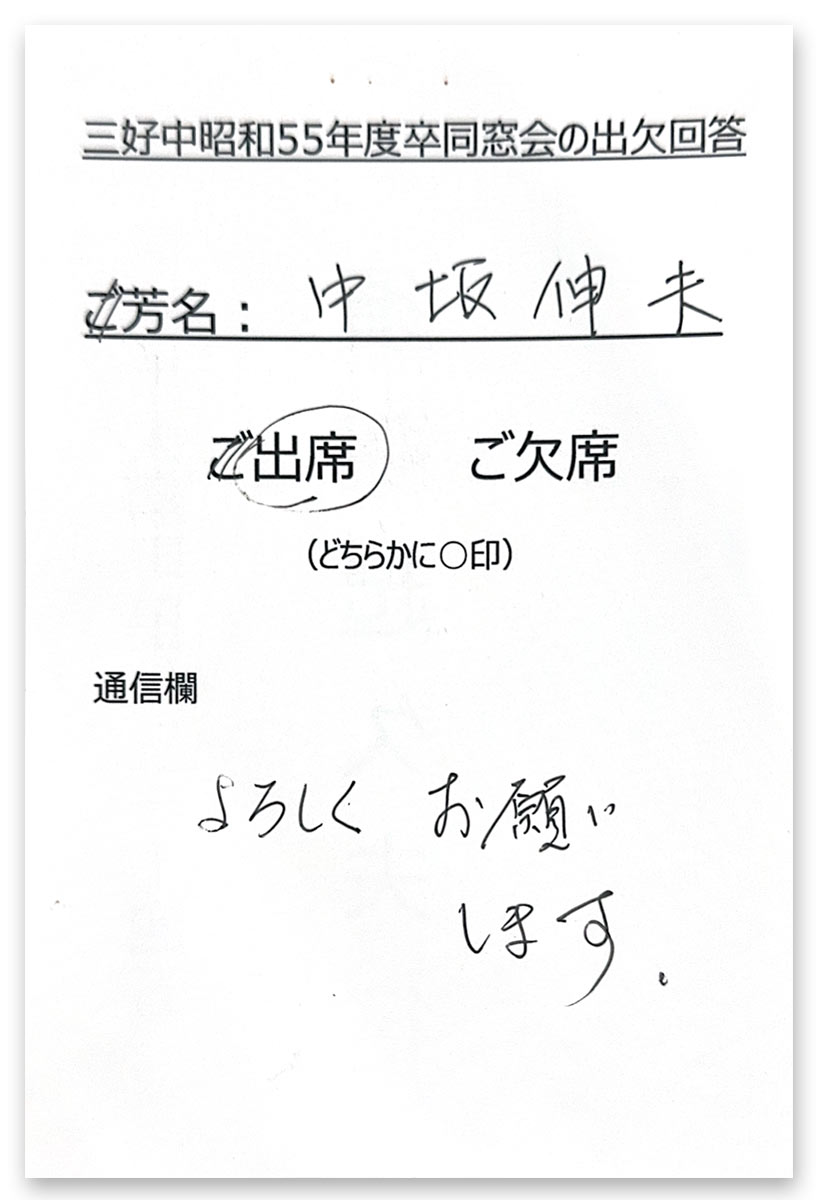 三好中昭和55年度卒同窓会の出欠回答
ご芳名： 中坂伸夫
ご出席 ご欠席
（どちらかに○印）
通信欄
よろしく お願い
します.